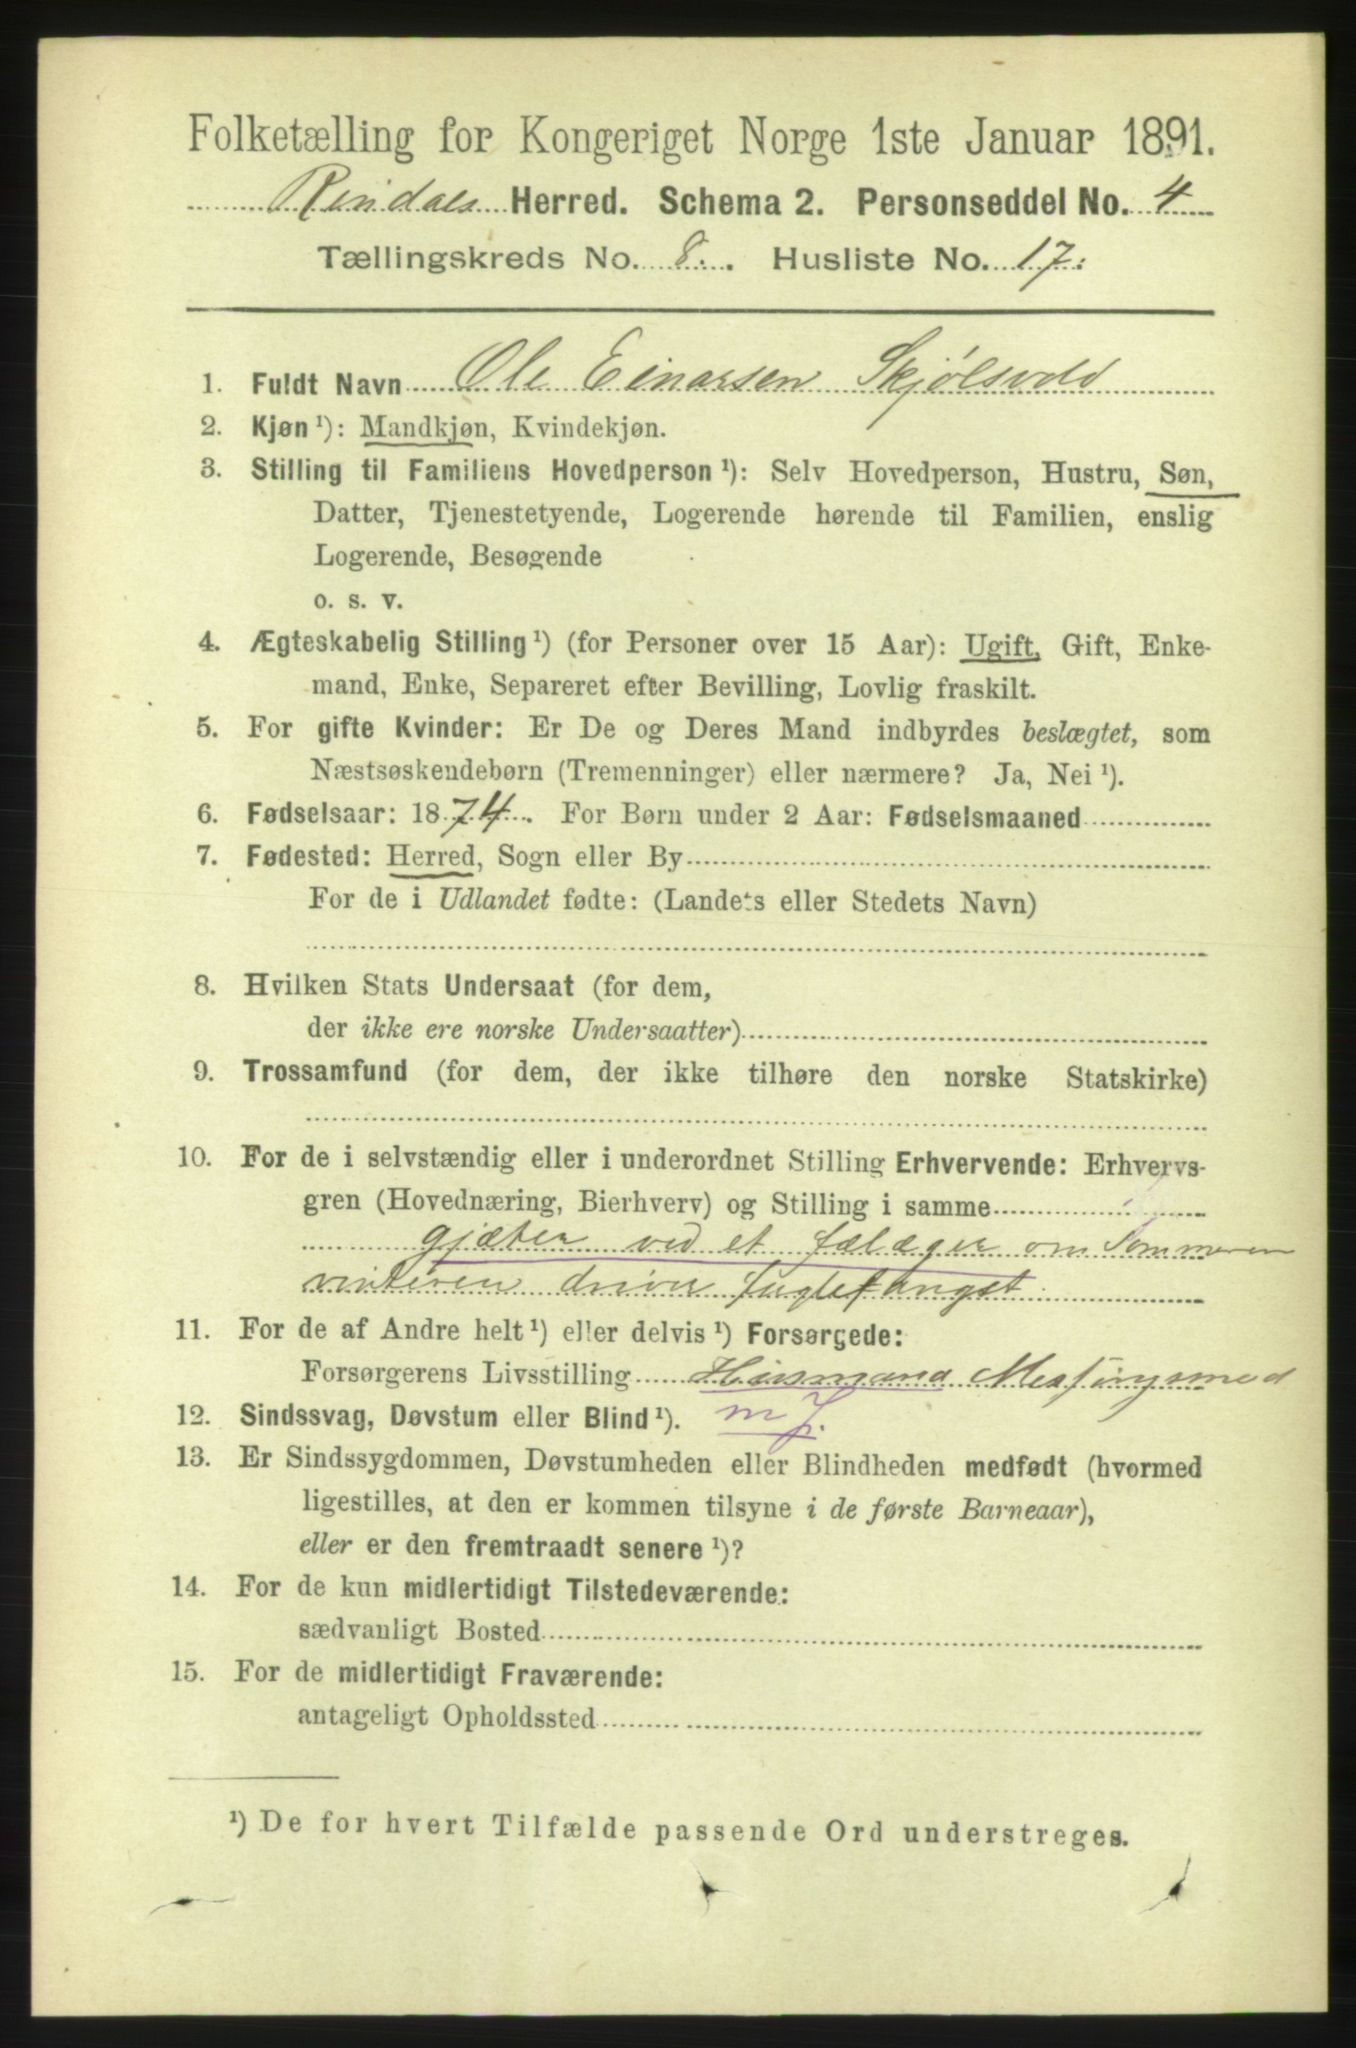 Folketælling for Kongeriget Norge 1ste Januar 1891.
Rindals Herred. Schema 2. Personseddel No. 4
Tællingskreds No. 8. Husliste No. 17.
1. Fuldt Navn Ole Einarsen Skjølsvold
2. Kjøn ¹): Mandkjøn, Kvindekjøn.
3. Stilling til Familiens Hovedperson ¹): Selv Hovedperson, Hustru, Søn,
Datter, Tjenestetyende, Logerende hørende til Familien, enslig
Logerende, Besøgende
o. s. v.
4. Ægteskabelig Stilling ¹) (for Personer over 15 Aar): Ugift, Gift, Enke-
mand, Enke, Separeret efter Bevilling, Lovlig fraskilt.
5. For gifte Kvinder: Er De og Deres Mand indbyrdes beslægtet, som
Næstsøskendebørn (Tremenninger) eller nærmere? Ja, Nei ¹).
6. Fødselsaar: 1874. For Børn under 2 Aar: Fødselsmaaned
7. Fødested: Herred, Sogn eller By
For de i Udlandet fødte: (Landets eller Stedets Navn)
8. Hvilken Stats Undersaat (for dem,
der ikke ere norske Undersaatter)
9. Trossamfund (for dem, der ikke tilhøre den norske Statskirke)
10. For de i selvstændig eller i underordnet Stilling Erhvervende: Erhvervs-
gren (Hovednæring, Bierhverv) og Stilling i samme
gjæter ved et fælæger om Sommeren
vinteren driver fuglefangst
11. For de af Andre helt ¹) eller delvis ¹) Forsørgede:
Forsørgerens Livsstilling Husmand Messingsmed
12. Sindssvag, Døvstum eller Blind ¹). m J.
13. Er Sindssygdommen, Døvstumheden eller Blindheden medfødt (hvormed
ligestilles, at den er kommen tilsyne i de første Barneaar),
eller er den fremtraadt senere ¹)?
14. For de kun midlertidigt Tilstedeværende:
sædvanligt Bosted
15. For de midlertidigt Fraværende:
antageligt Opholdssted
¹) De for hvert Tilfælde passende Ord understreges.